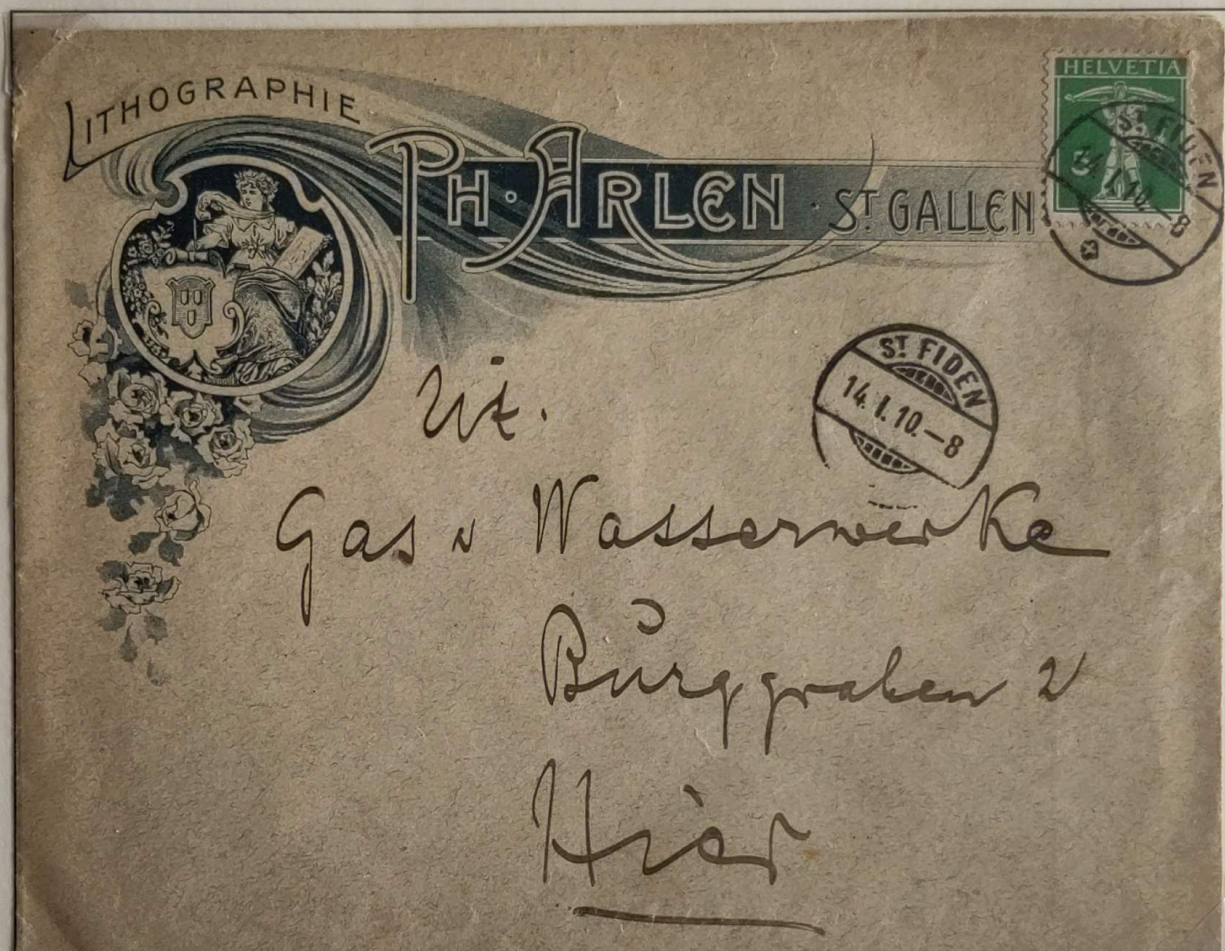 LITHOGRAPHIE
PH. ARLEN · ST. GALLEN
HELVETIA
5
ST. FIDEN
14. I. 10.–8
ST. FIDEN
14. I. 10.–8
Tit.
Gas u Wasserwerke
Burggraben 2
Hier